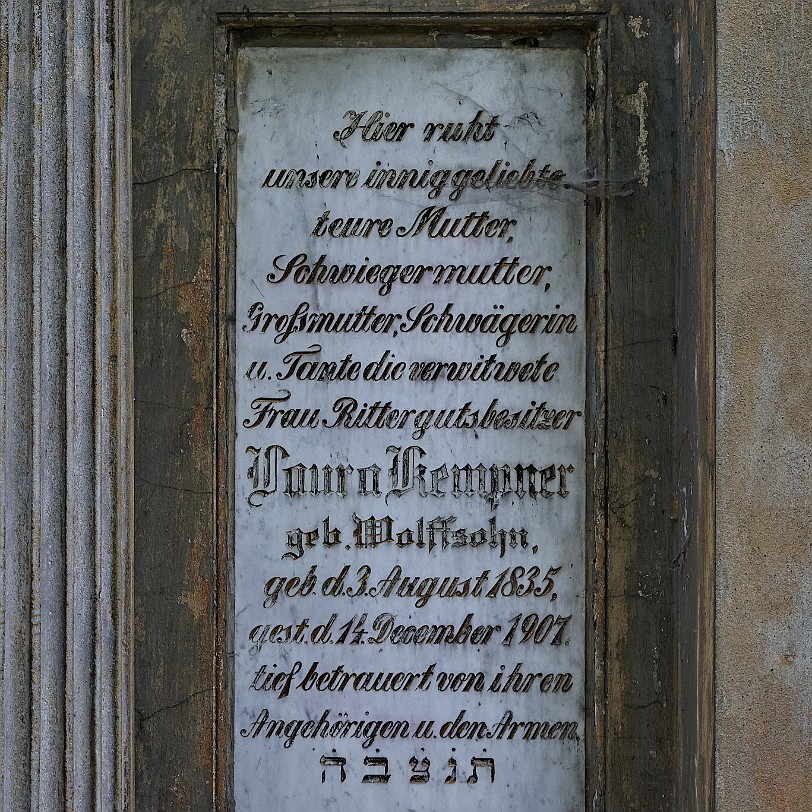 Hier ruht
unsere inniggeliebte
teure Mutter,
Schwiegermutter,
Großmutter, Schwägerin
u. Tante die verwitwete
Frau Rittergutsbesitzer
Laura Kempner
geb. Wolffsohn,
geb. d. 3. August 1835,
gest. d. 14. December 1907.
tief betrauert von ihren
Angehörigen u. den Armen.
תנצבה